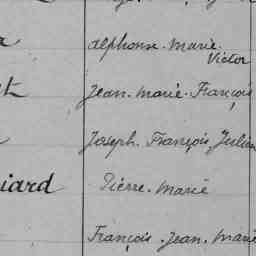 Alphonse-Marie
Victor
Jean-Marie-François
Joseph-François Julien
iard Pierre-Marie
François-Jean-Marie